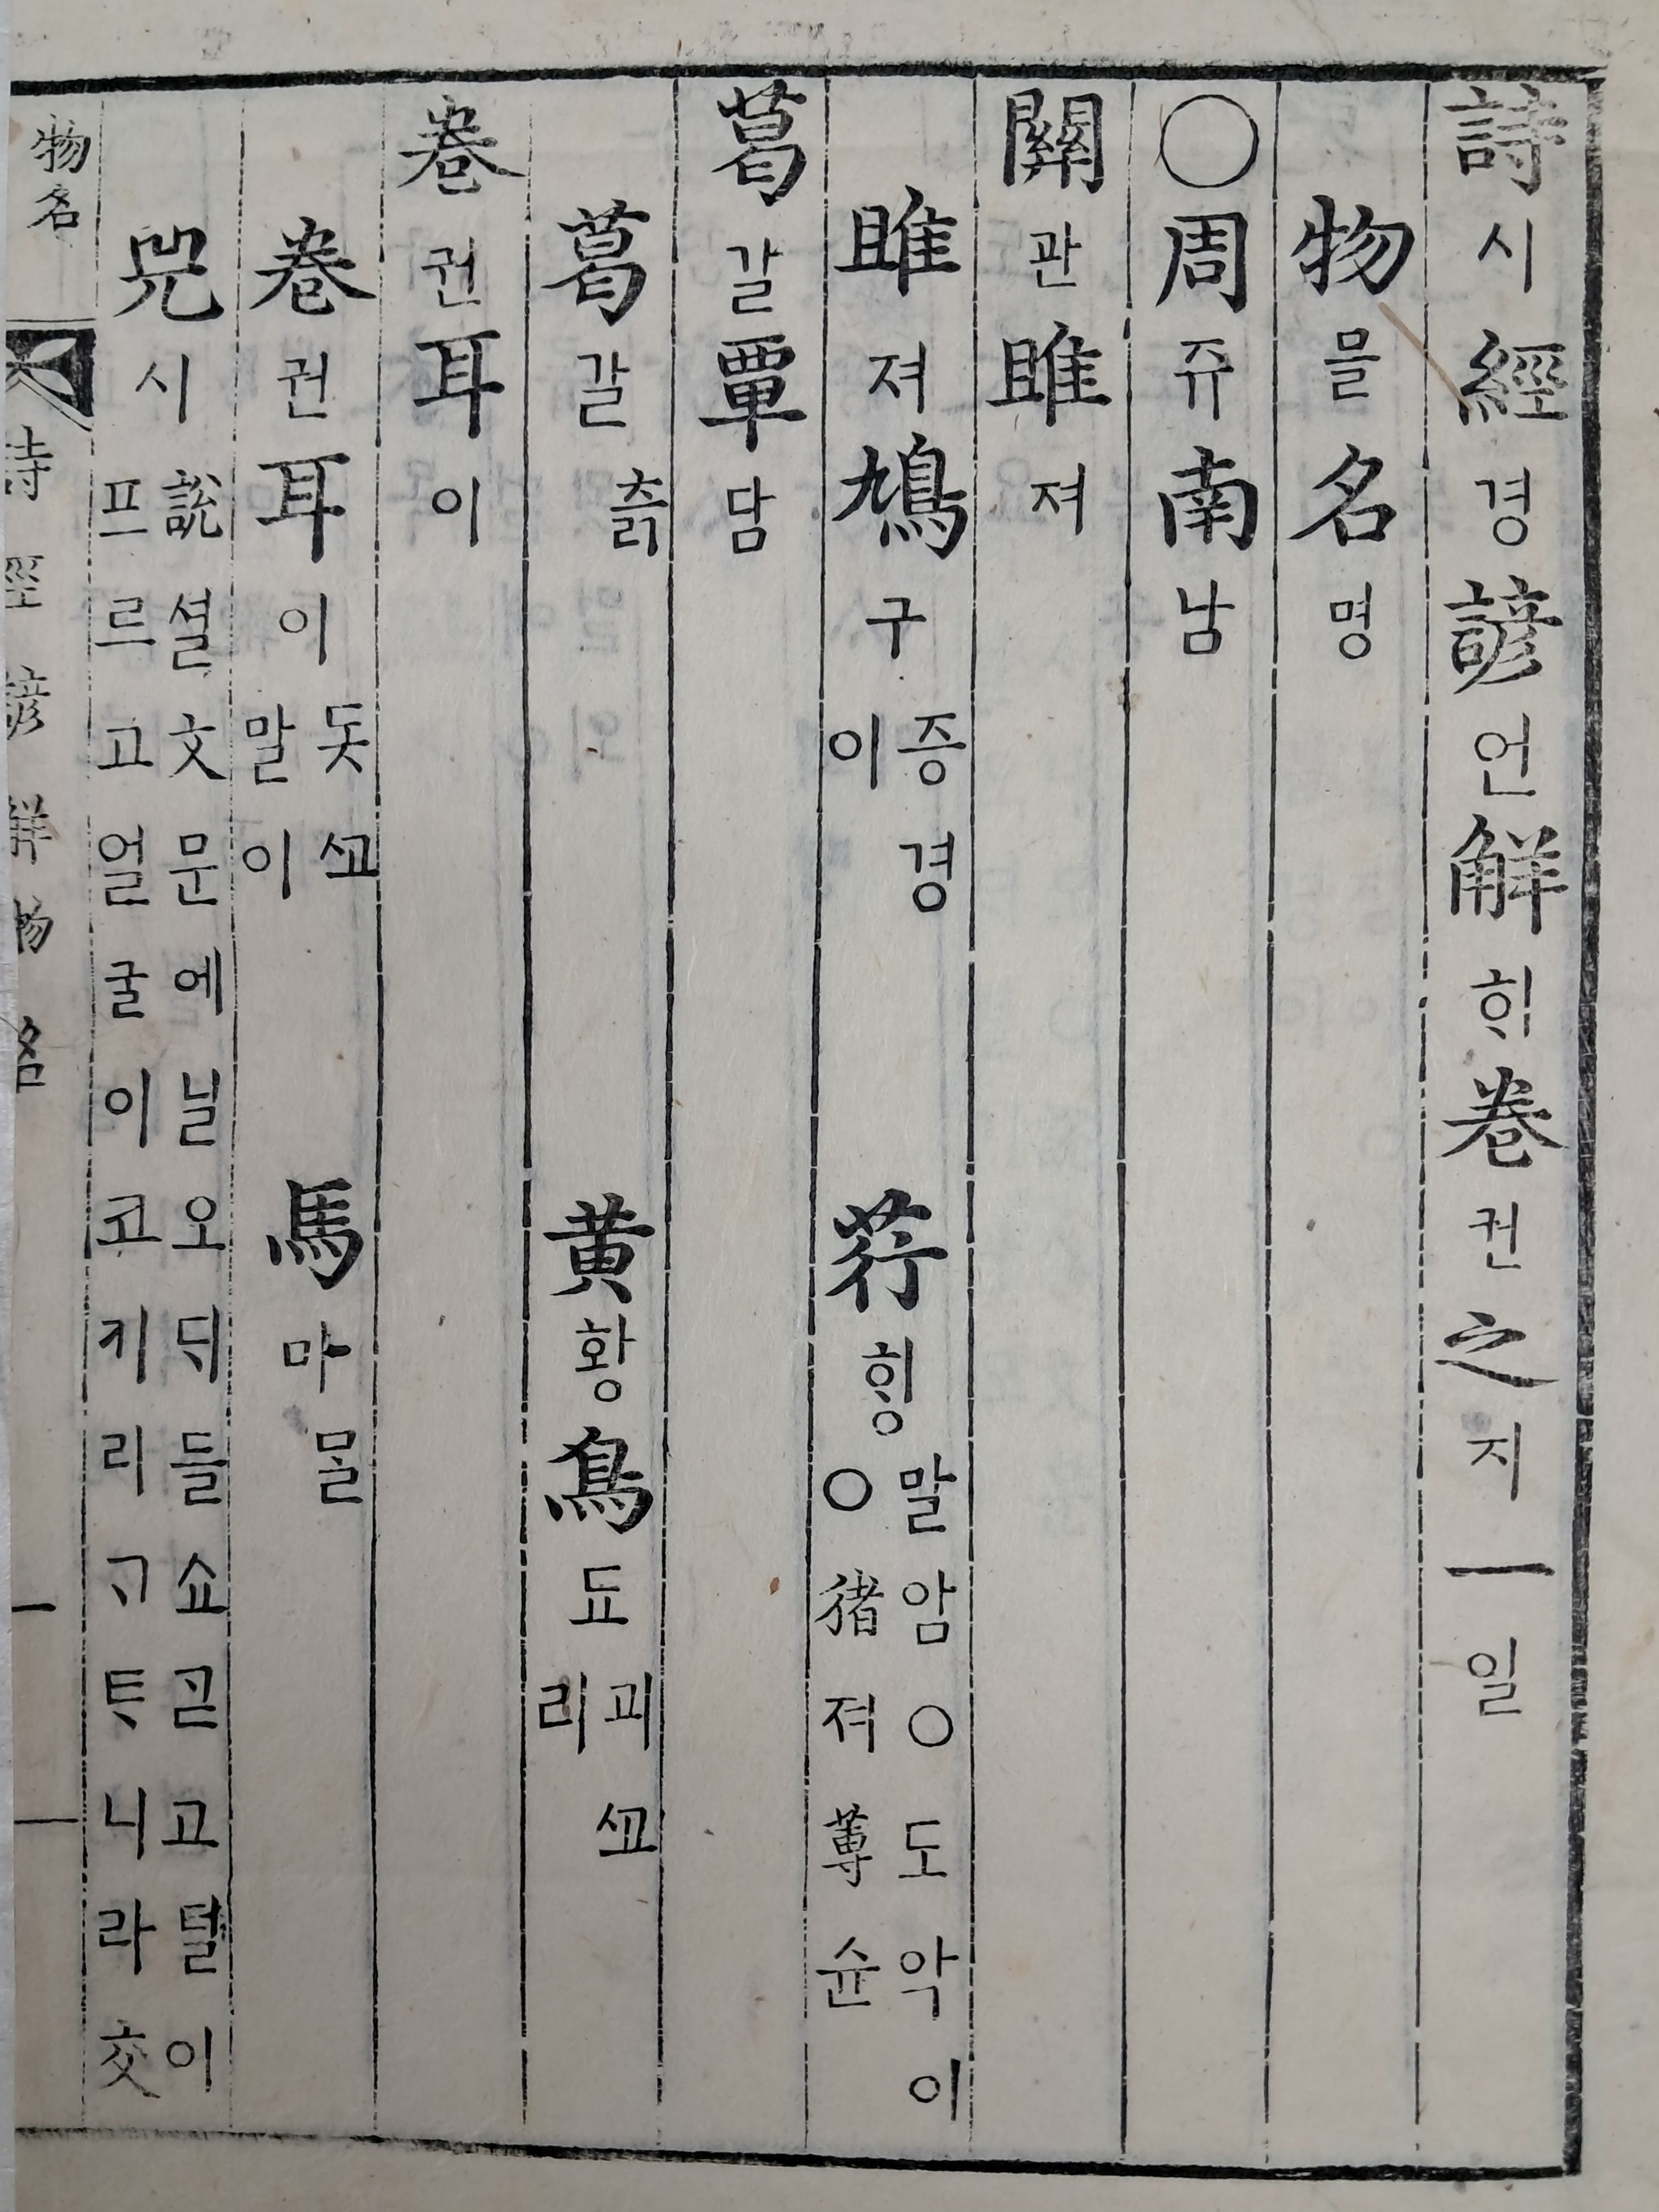 詩시經경諺언解ᄒᆡ卷권之지一일
物믈名명
〇周쥬南남
關관雎져
雎져鳩구증경이 荇ᄒᆡᇰ말암〇도악이〇猪져蓴슌
葛갈覃담
葛갈츩 黄황鳥됴괴ᄭᅩ리
卷권耳이
卷권耳이돗ᄭᅩ말이 馬마ᄆᆞᆯ
兕시說셜文문에닐오ᄃᆡ들쇼ᄀᆞᆮ고털이프르고얼굴이고키리ᄀᆞᄐᆞ니라交
物名
詩經諺解物名
一